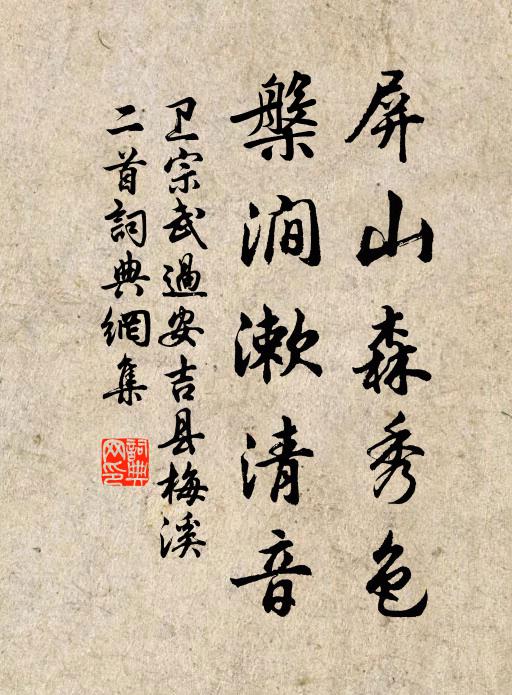 屏山森秀色
槃涧漱清音
卫宗武過安吉县梅溪
二首詞典網集
詞典
网印